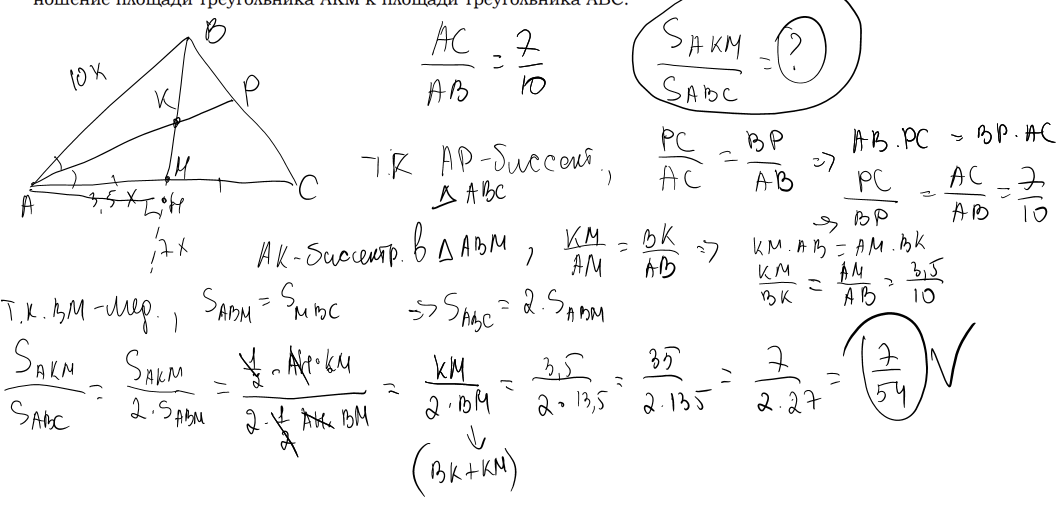 ношение площади треугольника АКМ к площади треугольника АВС.
B
10x
K
P
M
A
3,5x
H
C
7x
AC/AB = 7/10
S_AKM/S_ABC = ?
Т.к AP-биссект, △ABC
PC/AC = BP/AB => AB.PC = BP.AC
=> PC/BP = AC/AB = 7/10
AK-биссектр. в △ABM, KM/AM = BK/AB => KM.AB = AM.BK
KM/BK = AM/AB = 3,5/10
Т.к. BM-мед., S_ABM = S_MBC => S_ABC = 2.S_ABM
S_AKM/S_ABC = S_AKM/2.S_ABM = 1/2 . AH.KM/2.1/2 AH. BM = KM/2.BM = 3,5/2.13,5 = 35/2.135 = 7/2.27 = 7/54
(BK+KM)